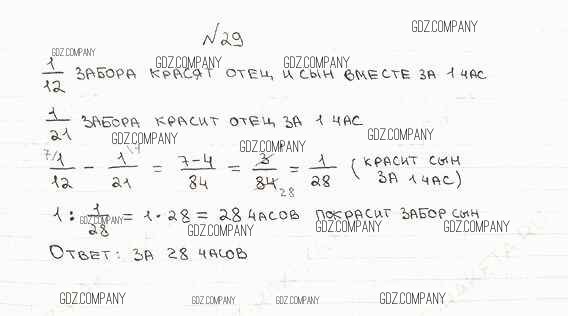 №29
GDZ.COMPANY
GDZ.COMPANY
GDZ.COMPANY GDZ.COMPANY
1/12 ЗАБОРА КРАСЯТ ОТЕЦ И СЫН ВМЕСТЕ ЗА 1 ЧАС
1/21 ЗАБОРА КРАСИТ ОТЕЦ ЗА 1 ЧАС
GDZ.COMPANY GDZ.COMPANY GDZ.COMPANY
7/ 1/12 - 1/21 \4 = 7-4/84 = 3/84 28 = 1/28 (КРАСИТ СЫН ЗА 1 ЧАС)
1 : 1/28 = 1·28 = 28 ЧАСОВ ПОКРАСИТ ЗАБОР СЫН
GDZ.COMPANY GDZ.COMPANY GDZ.COMPANY GDZ.COMPANY
ОТВЕТ: ЗА 28 ЧАСОВ
GDZ.COMPANY GDZ.COMPANY GDZ.COMPANY GDZ.COMPANY